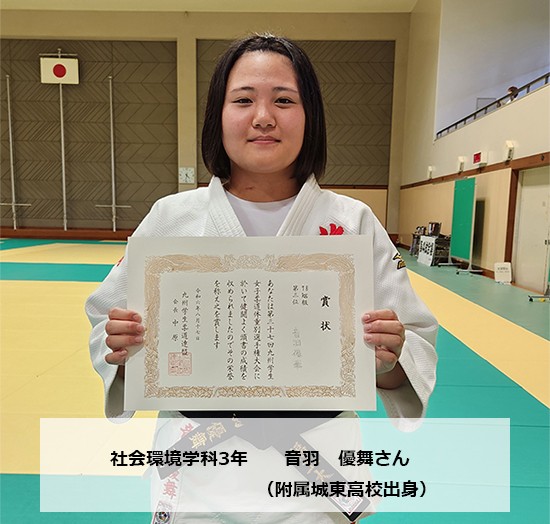 賞状
78㎏級
第三位
音羽優舞
あなたは第三十七回九州学生
女子柔道体重別選手権大会に
於いて健闘よく頭書の成績を
収められましたのでその栄誉
を称え之を賞します
令和六年八月十七日
九州学生柔道連盟
会長 中原
社会環境学科3年　音羽　優舞さん
（附属城東高校出身）